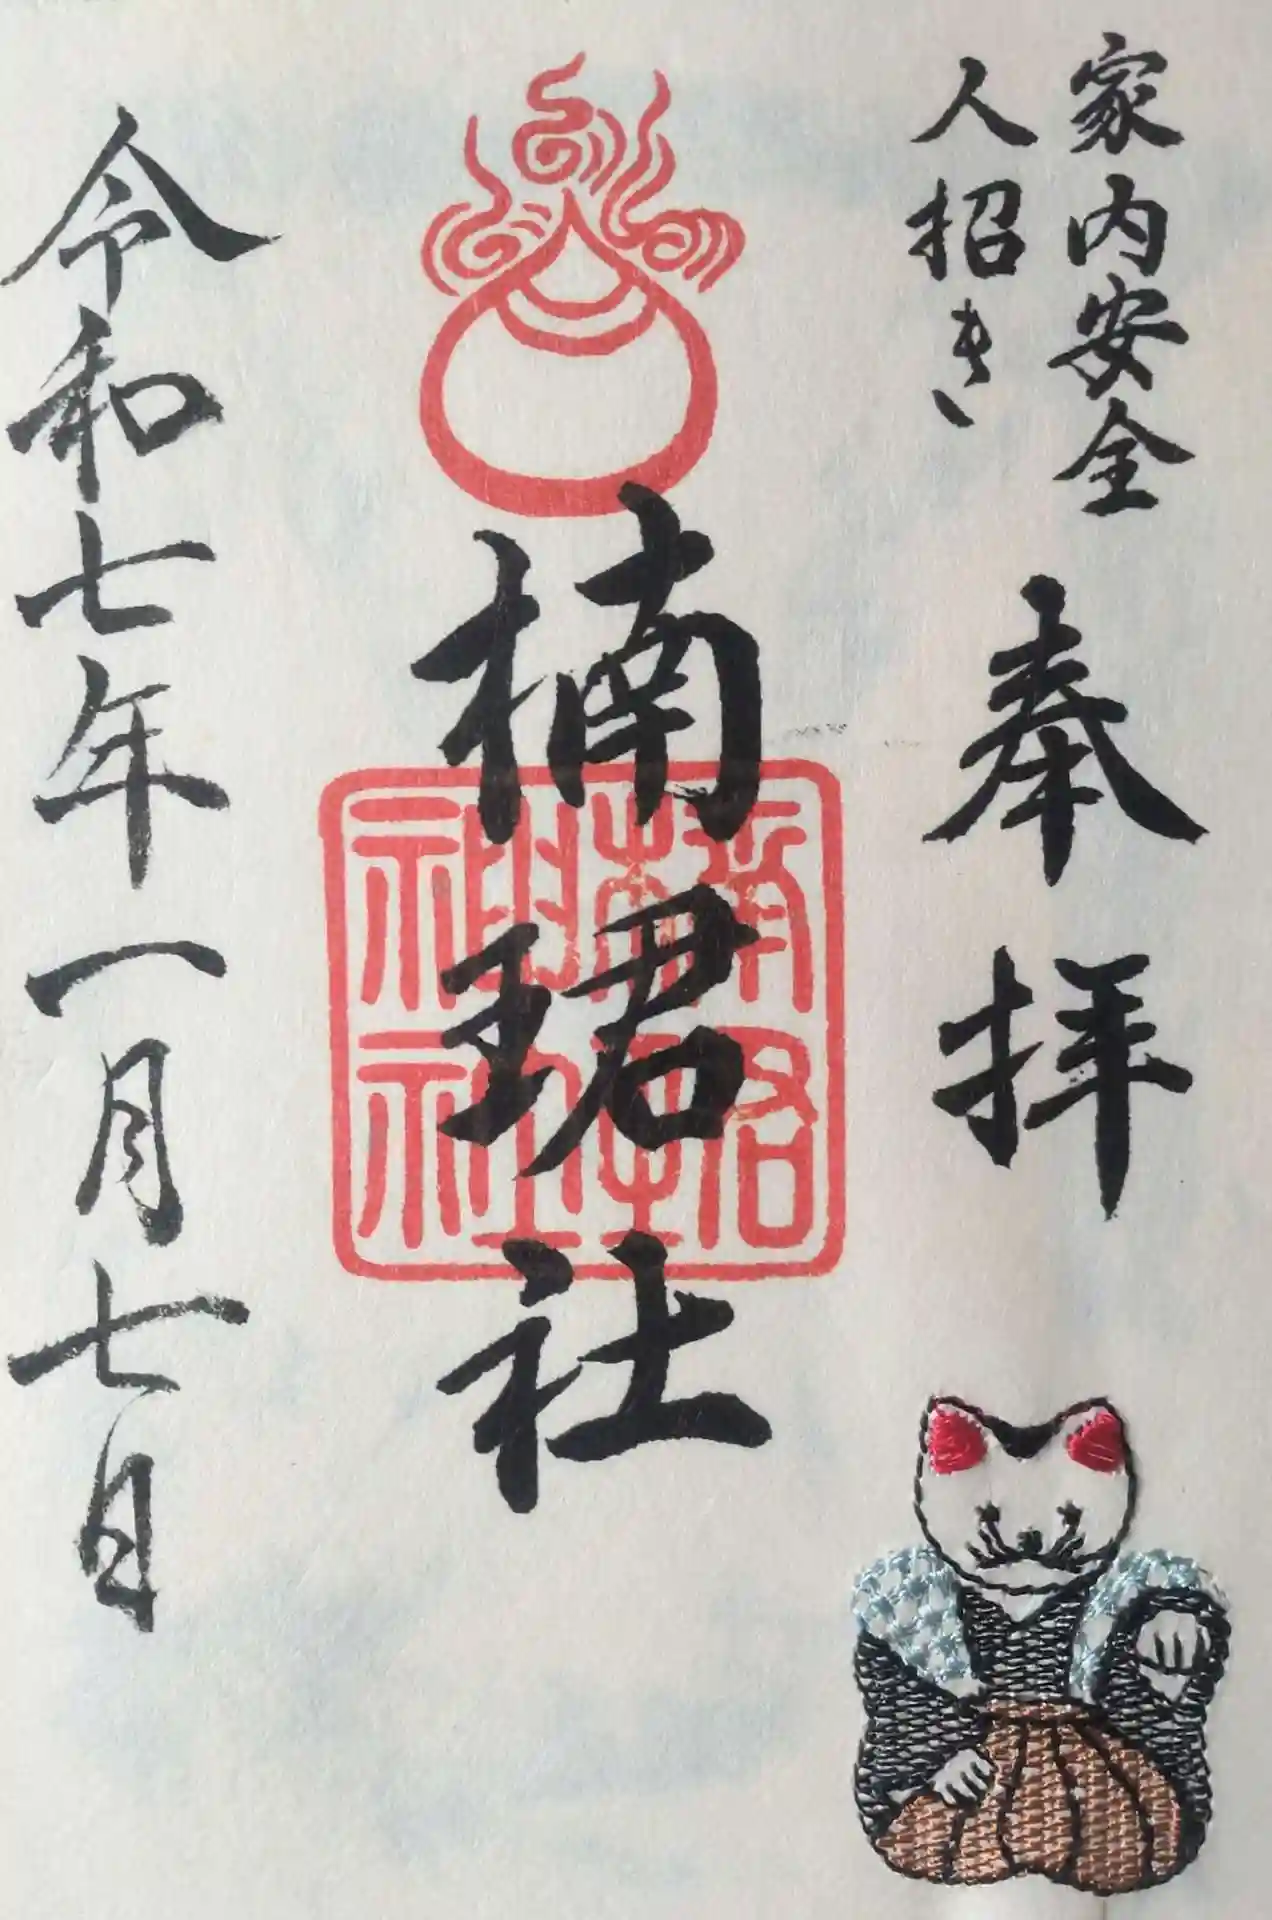 家内安全
人招き
奉拝
楠珺社
楠珺社神社
令和七年一月七日